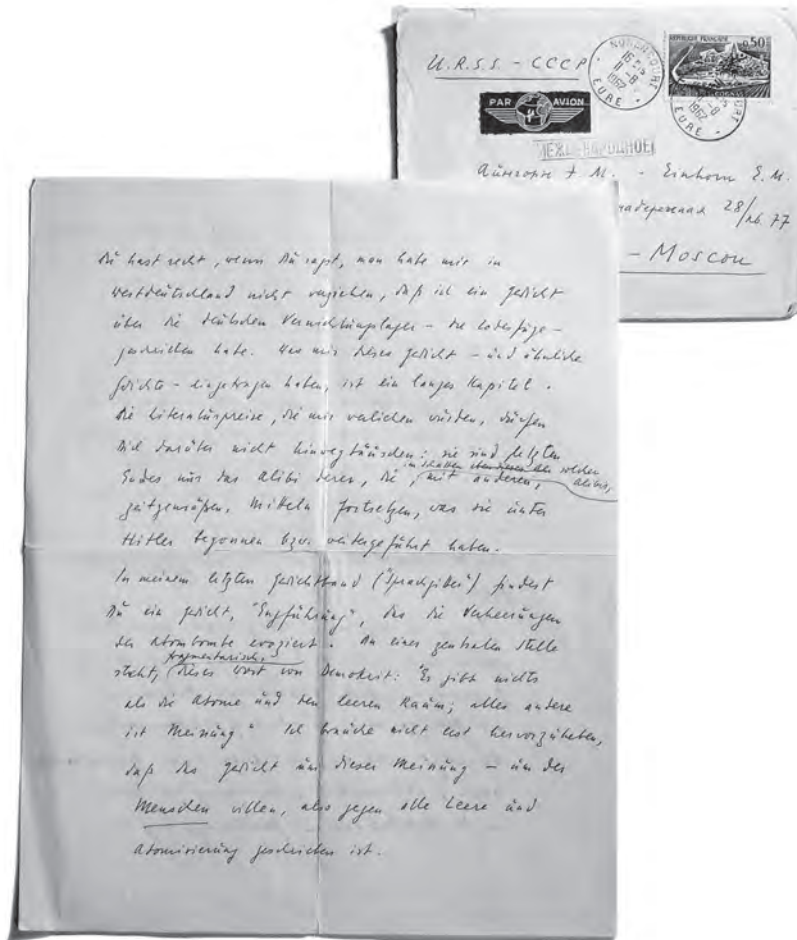 U.R.S.S. - CCCP
NONANCOURT
16 H 15
11 - 8
1962
EURE
RÉPUBLIQUE FRANÇAISE
0,50
COGNAC
PAR AVION
МЕЖДУНАРОДНОЕ
Айнгорн Э. М. - Einhorn E. M.
набережная 28/кв. 77
- Moscou
Du hast recht, wenn Du sagst, man habe mir in
Westdeutschland nicht verziehen, daß ich ein Gedicht
über die deutschen Vernichtungslager – die Todesfuge –
geschrieben habe. Was mir dieses Gedicht – und ähnliche
Gedichte – eingetragen haben, ist ein langes Kapitel.
Die Literaturpreise, die mir verliehen wurden, dürfen
Dich darüber nicht hinwegtäuschen: sie sind letzten
Endes nur das Alibi derer, die, im Schatten solcher Alibis,
mit anderen,
zeitgemäßen, Mitteln fortsetzen, was sie unter
Hitler begonnen bzw. weitergeführt haben.
In meinem letzten Gedichtband ("Sprachgitter") findest
Du ein Gedicht, "Engführung", das die Verheerungen
der Atombombe evoziert. An einer zentralen Stelle
steht, fragmentarisch, dieses Wort von Demokrit: "Es gibt nichts
als die Atome und den leeren Raum; alles andere
ist Meinung." Ich brauche nicht erst hervorzuheben,
daß das Gedicht um dieser Meinung – um der
Menschen willen, also gegen alle Leere und
Atomisierung geschrieben ist.